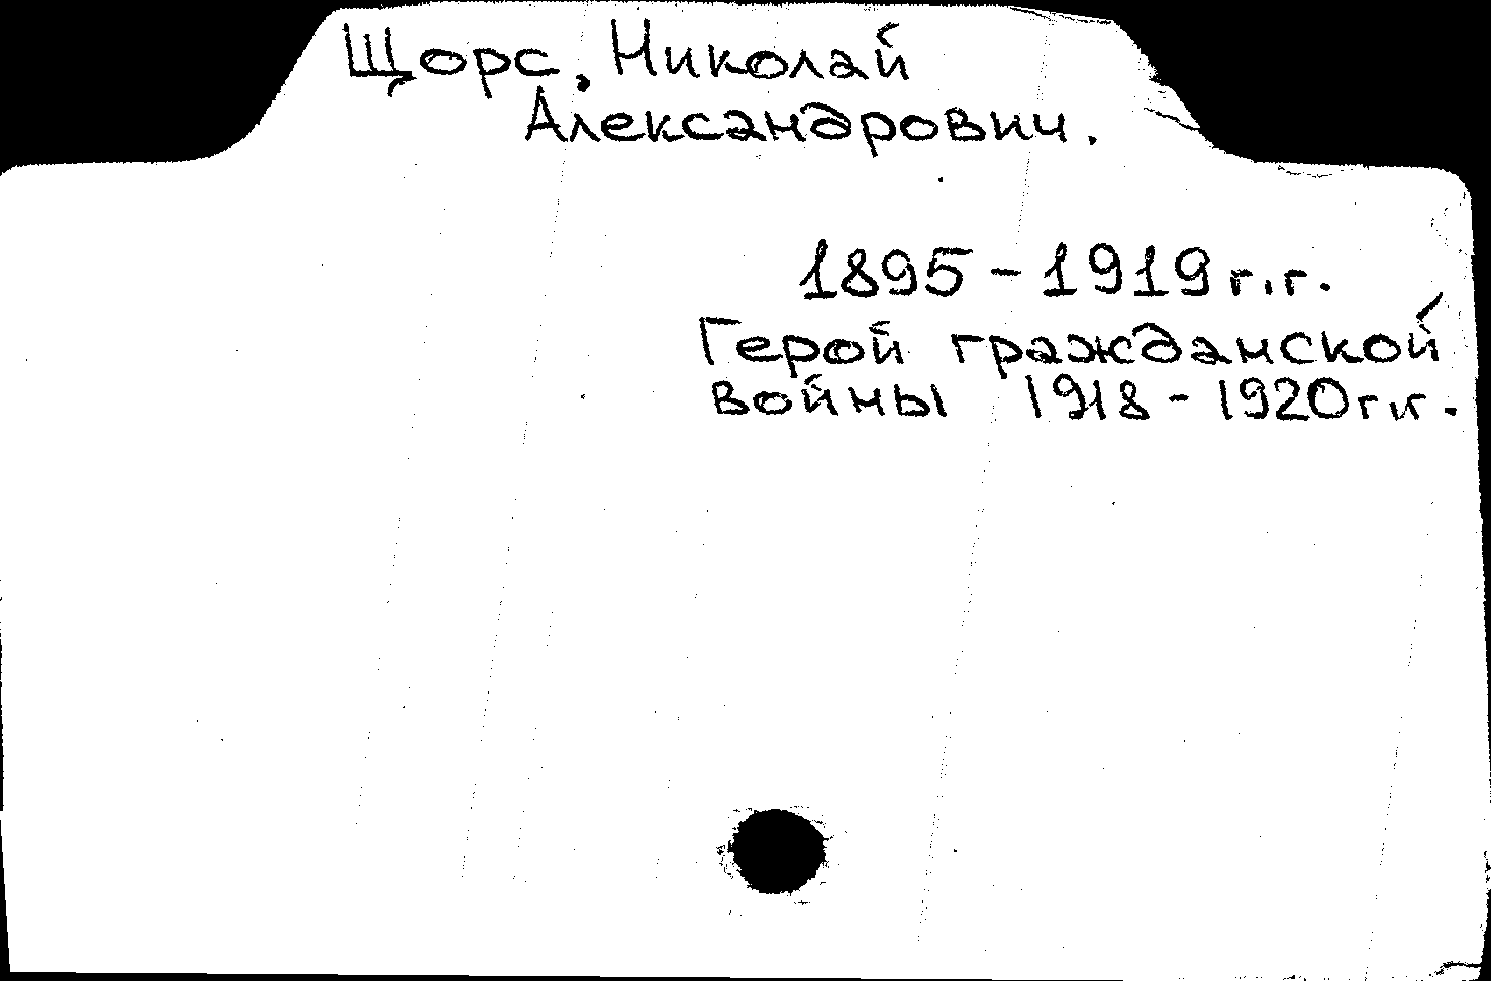 Щорс, Николай
Александрович.
1895-1919 г.г.
Герой гражданской
войны 1918-1920 г.г.